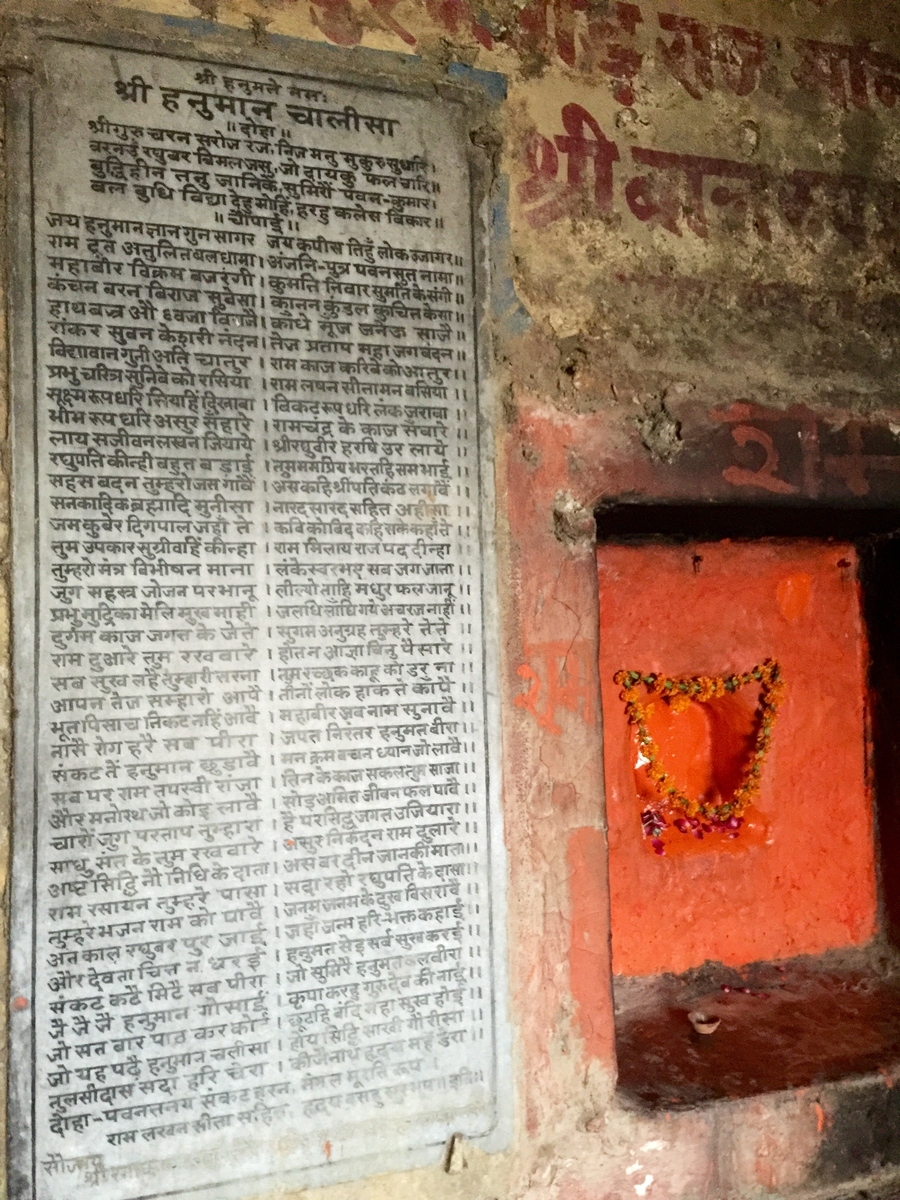 श्री हनुमते नमः
श्री हनुमान चालीसा
॥ दोहा ॥
श्रीगुरु चरन सरोज रज, निज मनु मुकुरु सुधारि।
बरनउँ रघुबर बिमल जसु, जो दायकु फल चारि॥
बुद्धिहीन तनु जानिके, सुमिरौं पवन-कुमार।
बल बुधि विद्या देहु मोहिं, हरहु कलेस विकार॥
॥ चौपाई ॥
जय हनुमान ज्ञान गुन सागर जय कपीस तिहुँ लोक उजागर॥
राम दूत अतुलित बल धामा। अंजनि-पुत्र पवनसुत नामा॥
महाबीर विक्रम बजरंगी। कुमति निवार सुमति के संगी॥
कंचन बरन बिराज सुबेसा। कानन कुंडल कुंचित केसा॥
हाथ बज्र औ ध्वजा विराजै। काँधे मूज जनेऊ साजै॥
शंकर सुवन केशरी नंदन। तेज प्रताप महा जग बंदन॥
विद्यावान गुनी अति चातुर। राम काज करिबे को आतुर॥
प्रभु चरित्र सुनिबे को रसिया। राम लषन सीता मन बसिया॥
सूक्ष्म रूप धरि सियहिं दिखावा। बिकट रूप धरि लंक जरावा॥
भीम रूप धरि असुर सँहारे। रामचंद्र के काज सँवारे॥
लाय सजीवन लखन जियाये। श्रीरघुबीर हरषि उर लाये॥
रघुपति कीन्ही बहुत बड़ाई। तुम मम प्रिय भरतहि सम भाई॥
सहस बदन तुम्हरो जस गावैं। अस कहि श्रीपति कंठ लगावैं॥
सनकादिक ब्रह्मादि मुनीसा। नारद सारद सहित अहीसा॥
जम कुबेर दिगपाल जहाँ ते। कबि कोबिद कहि सके कहाँ ते॥
तुम उपकार सुग्रीवहिं कीन्हा। राम मिलाय राज पद दीन्हा॥
तुम्हरो मंत्र विभीषन माना। लंकेस्वर भए सब जग जाना॥
जुग सहस्त्र जोजन पर भानू। लील्यो ताहि मधुर फल जानू॥
प्रभु मुद्रिका मेलि मुख माही। जलधि लाँघि गये अचरज नाहीं॥
दुर्गम काज जगत के जेते। सुगम अनुग्रह तुम्हरे तेते॥
राम दुआरे तुम रखवारे। होत न आज्ञा बिनु पैसारे॥
सब सुख लहै तुम्हारी सरना। तुम रच्छक काहू को डर ना॥
आपन तेज सम्हारो आपै। तीनों लोक हाँक ते काँपै॥
भूत पिसाच निकट नहिं आवै। महाबीर जब नाम सुनावै॥
नासै रोग हरै सब पीरा। जपत निरंतर हनुमत बीरा॥
संकट तें हनुमान छुड़ावै। मन क्रम बचन ध्यान जो लावै॥
सब पर राम तपस्वी राजा। तिन के काज सकल तुम साजा॥
और मनोरथ जो कोइ लावै। सोइ अमित जीवन फल पावै॥
चारों जुग परताप तुम्हारा। है परसिद्ध जगत उजियारा॥
साधु संत के तुम रखवारे। असुर निकंदन राम दुलारे॥
अष्ट सिद्धि नौ निधि के दाता। अस बर दीन जानकी माता॥
राम रसायन तुम्हरे पासा। सदा रहो रघुपति के दासा॥
तुम्हरे भजन राम को पावै। जनम जनम के दुख बिसरावै॥
अंत काल रघुबर पुर जाई। जहाँ जन्म हरि-भक्त कहाई॥
और देवता चित्त न धरई। हनुमत सेइ सर्व सुख करई॥
संकट कटै मिटै सब पीरा। जो सुमिरै हनुमत बलबीरा॥
जै जै जै हनुमान गोसाईं। कृपा करहु गुरुदेव की नाईं॥
जो सत बार पाठ कर कोई। छूटहि बंदि महा सुख होई॥
जो यह पढ़ै हनुमान चलीसा। होय सिद्धि साखी गौरीसा॥
तुलसीदास सदा हरि चेरा। कीजै नाथ हृदय महँ डेरा॥
दोहा-पवनतनय संकट हरन, मंगल मूरति रूप।
राम लखन सीता सहित, हृदय बसहु सुर भूप॥ इति॥
सौजन्य
श्री
राम